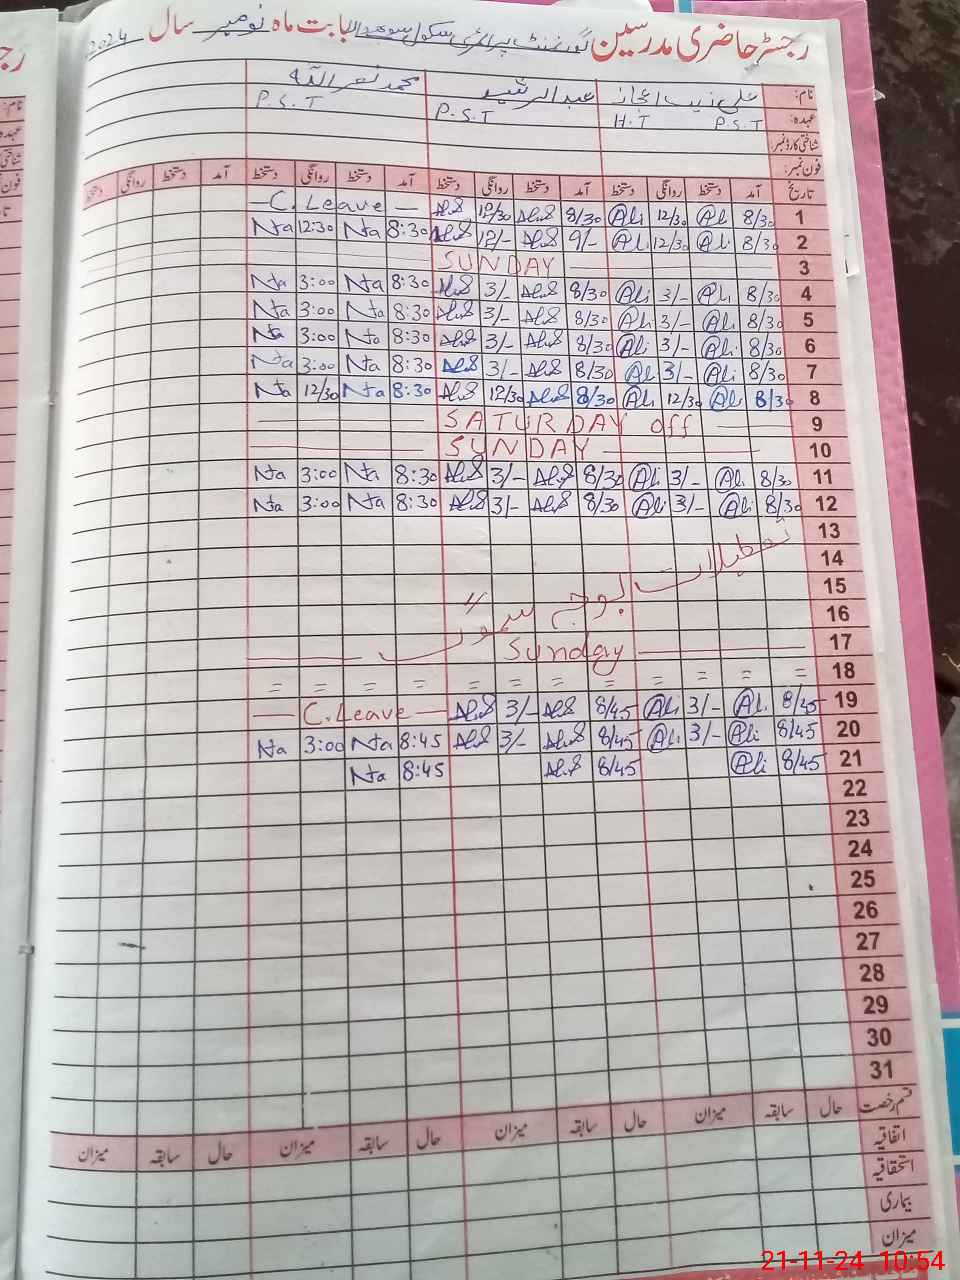 رجسٹر حاضری مدرسین گورنمنٹ پرائمری سکول بابت ماہ نومبر سال 2024
نام: علی زیب اعجاز عبدالرشید محمد نصر اللہ
عہدہ: P.S.T H.T P.S.T P.S.T
شناختی کارڈ نمبر:
فون نمبر:
تاریخ آمد دستخط روانگی دستخط آمد دستخط روانگی دستخط آمد دستخط روانگی دستخط آمد دستخط روانگی دستخط
1 8/30 Ali 12/30 Ali 8/30 12/30 C. Leave
2 8/30 Ali 12/30 Ali 9/- 12/- 8:30 Na 12:30 Na
3 SUNDAY
4 8/30 Ali 3/- Ali 8/30 3/- 8:30 Na 3:00 Na
5 8/30 Ali 3/- Ali 8/30 3/- 8:30 Na 3:00 Na
6 8/30 Ali 3/- Ali 8/30 3/- 8:30 Na 3:00 Na
7 8/30 Ali 3/- Ali 8/30 3/- 8:30 Na 3:00 Na
8 8/30 Ali 12/30 Ali 8/30 12/30 8:30 Na 12/30 Na
9 SATURDAY off
10 SUNDAY
11 8/30 Ali 3/- Ali 8/30 3/- 8:30 Na 3:00 Na
12 8/30 Ali 3/- Ali 8/30 3/- 8:30 Na 3:00 Na
13
14
تعطیلات بوجہ سموگ
15
16
17 Sunday
18 = = = = = = = = = = = =
19 8/45 Ali 3/- Ali 8/45 3/- C. Leave
20 8/45 Ali 3/- Ali 8/45 3/- 8:45 Na 3:00 Na
21 8/45 Ali 8/45 8:45 Na
22
23
24
25
26
27
28
29
30
31
قسم رخصت حال سابقہ میزان حال سابقہ میزان حال سابقہ میزان حال سابقہ میزان
اتفاقیہ
استحقاقیہ
بیماری
میزان
21-11-24 10:54